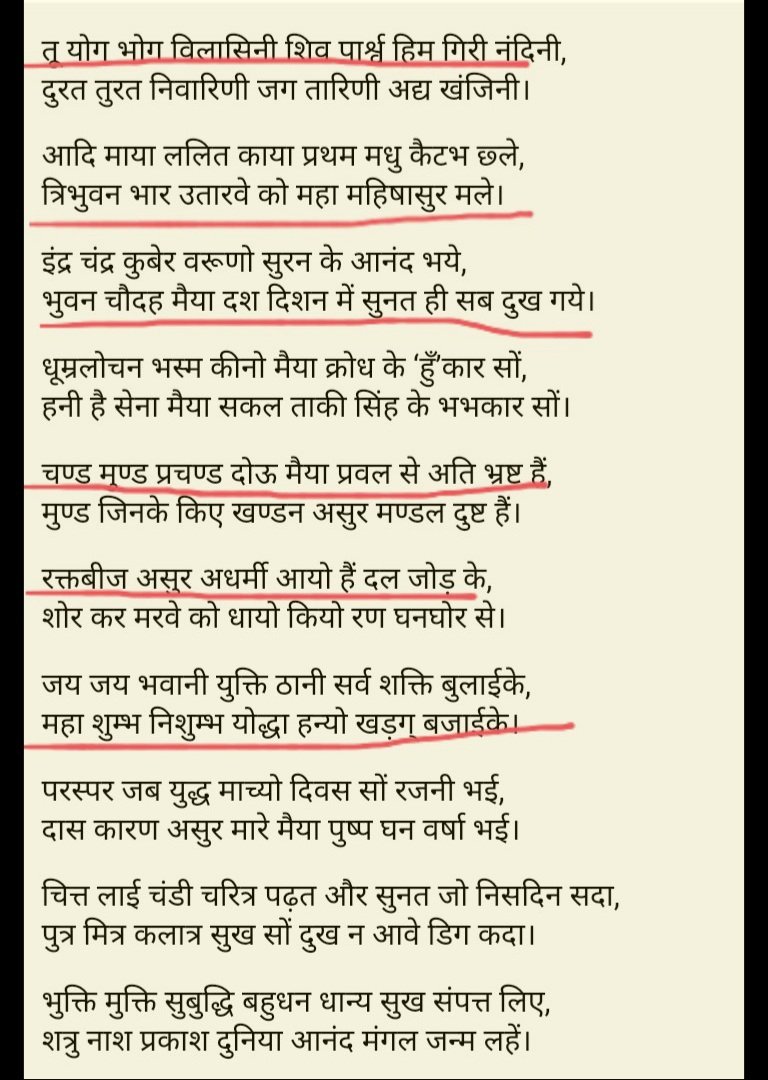 तू योग भोग विलासिनी शिव पार्श्व हिम गिरी नंदिनी,
दुरत तुरत निवारिणी जग तारिणी अद्य खंजिनी।
आदि माया ललित काया प्रथम मधु कैटभ छले,
त्रिभुवन भार उतारवे को महा महिषासुर मले।
इंद्र चंद्र कुबेर वरूणो सुरन के आनंद भये,
भुवन चौदह मैया दश दिशन में सुनत ही सब दुख गये।
धूम्रलोचन भस्म कीनो मैया क्रोध के ‘हुँ’कार सों,
हनी है सेना मैया सकल ताकी सिंह के भभकार सों।
चण्ड मुण्ड प्रचण्ड दोऊ मैया प्रवल से अति भ्रष्ट हैं,
मुण्ड जिनके किए खण्डन असुर मण्डल दुष्ट हैं।
रक्तबीज असुर अधर्मी आयो हैं दल जोड़ के,
शोर कर मरवे को धायो कियो रण घनघोर से।
जय जय भवानी युक्ति ठानी सर्व शक्ति बुलाईके,
महा शुम्भ निशुम्भ योद्धा हन्यो खड़ग् बजाईके।
परस्पर जब युद्ध माच्यो दिवस सों रजनी भई,
दास कारण असुर मारे मैया पुष्प घन वर्षा भई।
चित्त लाई चंडी चरित्र पढ़त और सुनत जो निसदिन सदा,
पुत्र मित्र कलात्र सुख सों दुख न आवे डिग कदा।
भुक्ति मुक्ति सुबुद्धि बहुधन धान्य सुख संपत्त लिए,
शत्रु नाश प्रकाश दुनिया आनंद मंगल जन्म लहें।